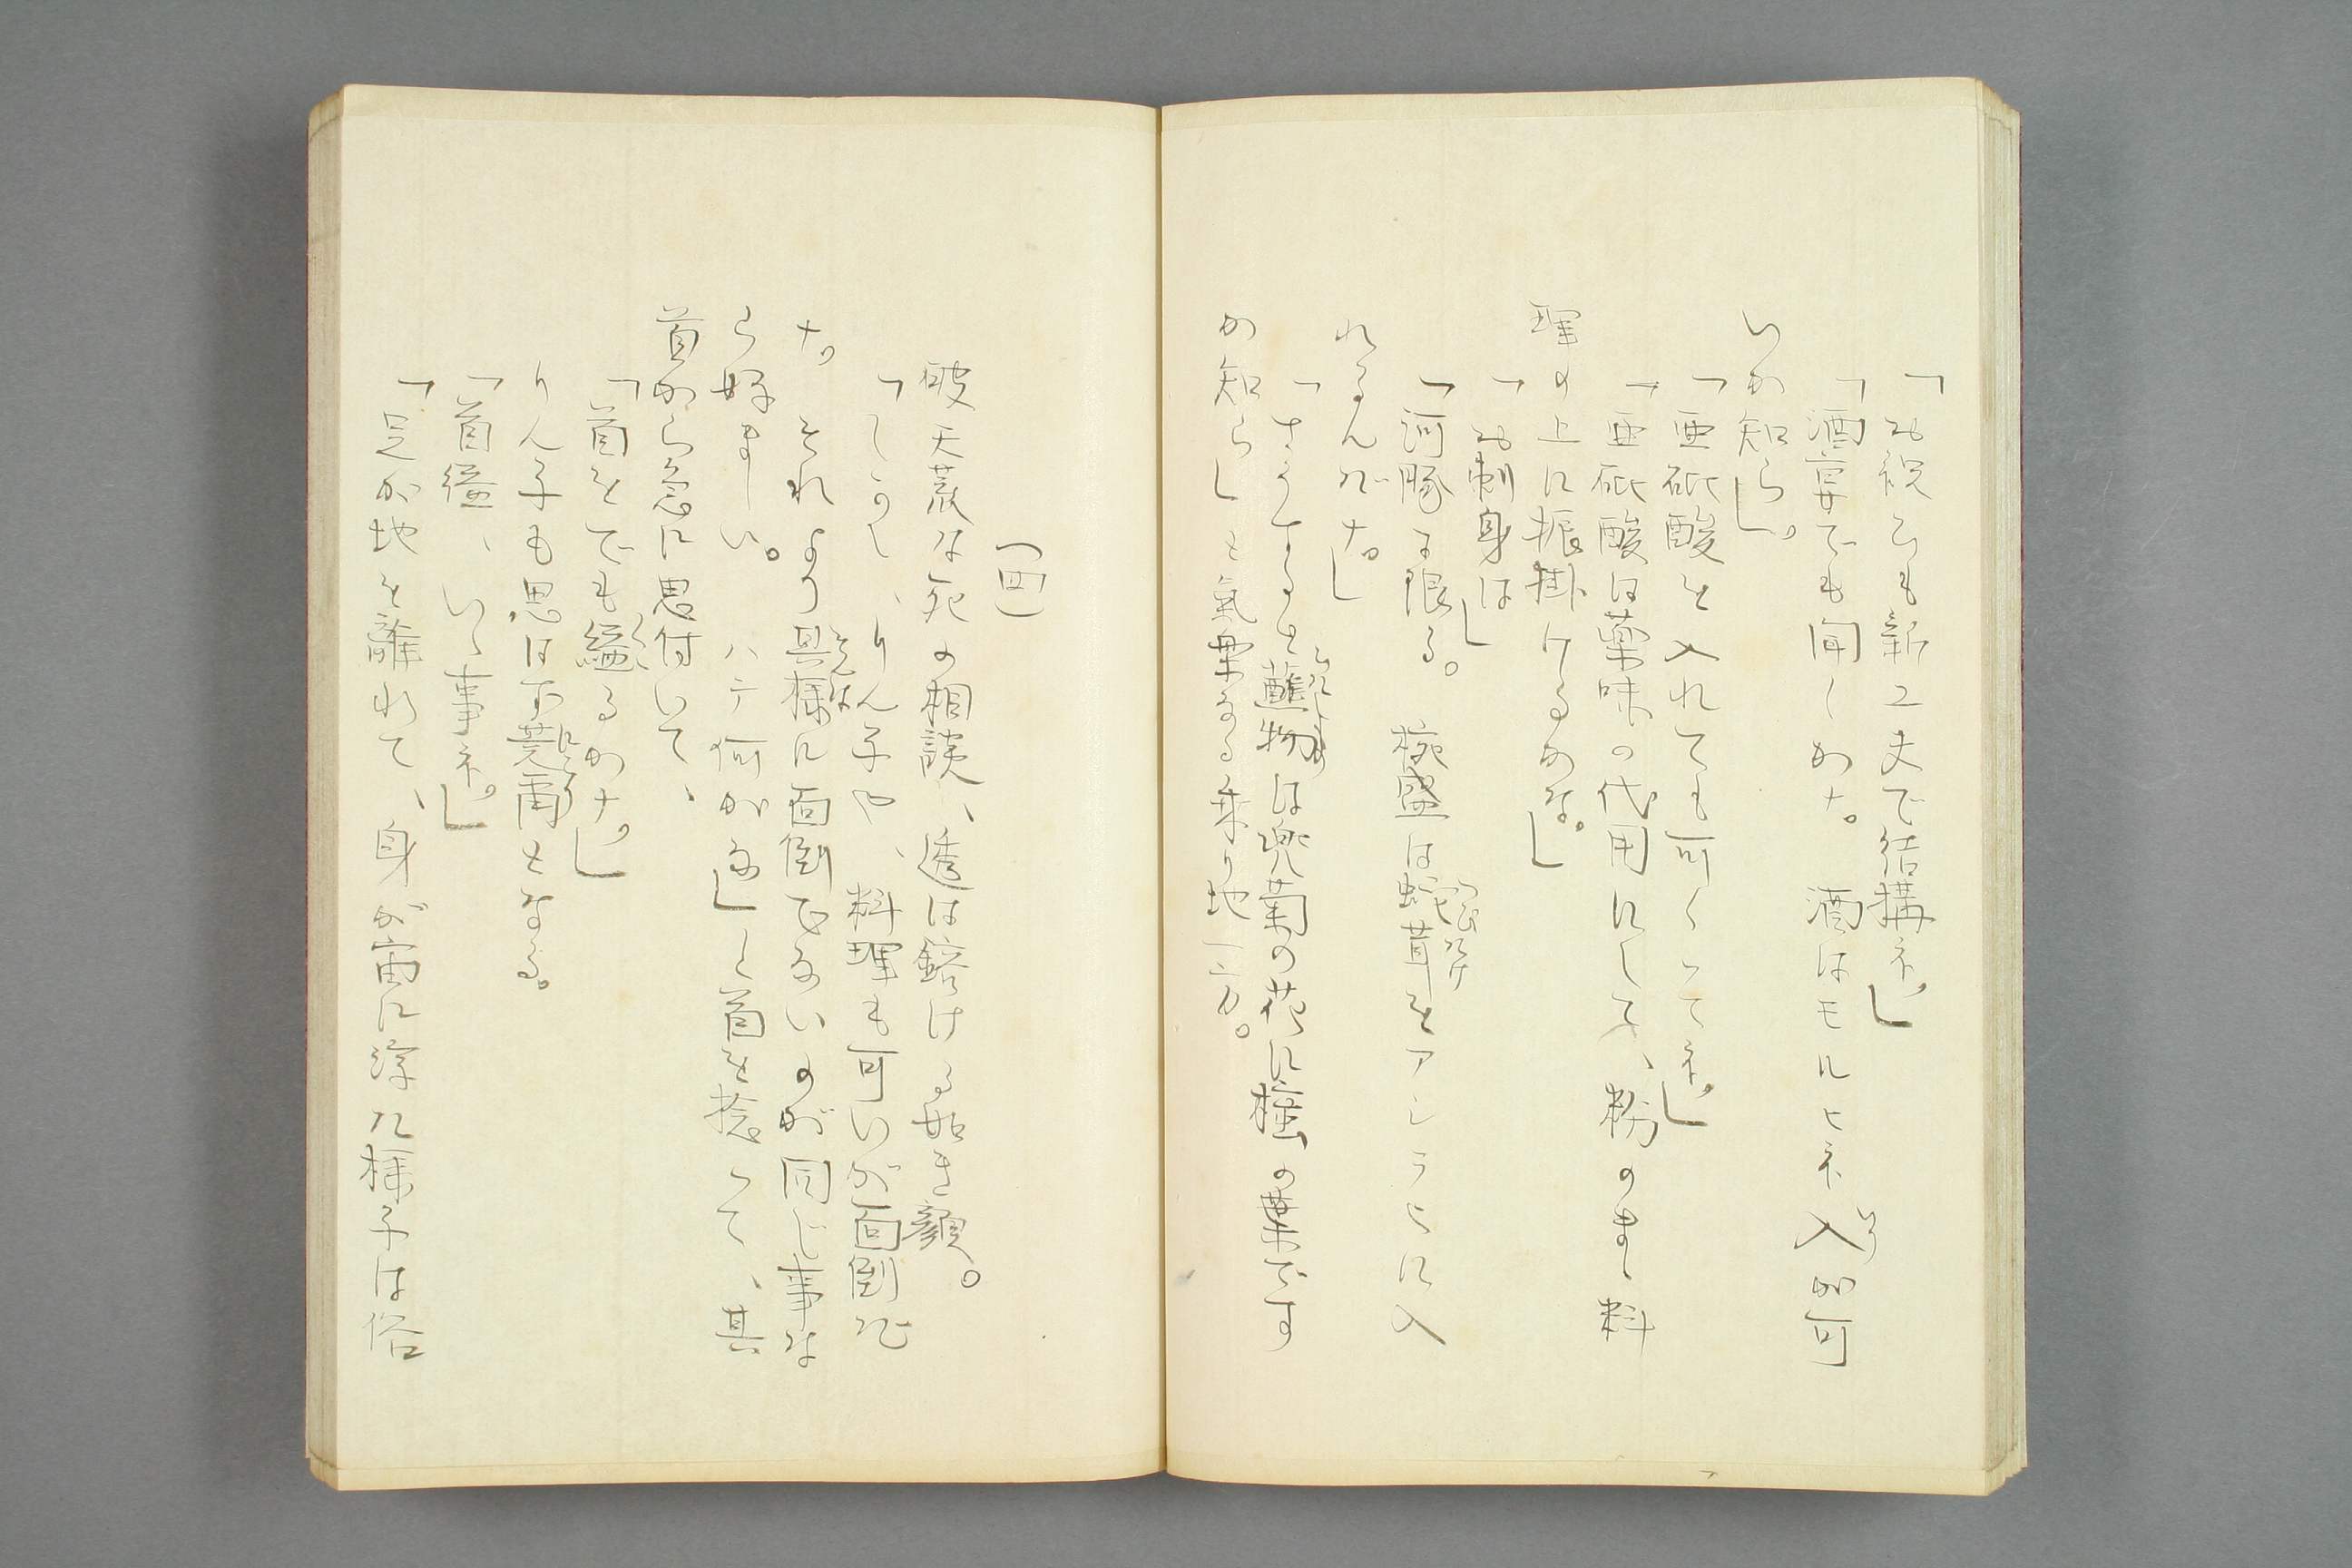 「お祝ひも新工夫で結構ネ。」
「酒宴でも開くかナ。 酒はモルヒネ入が可
いか知ら」。
「亜砒酸を入れても可くつてネ。」
「亜砒酸は薬味の代用にして、粉のまゝ料
理の上に振掛けるかな。」
「お刺身は」
「河豚に限る。 椀盛は蛇茸をアシラヒに入
れるんだナ。」
「さうすると蘸物は兜菊の花に樒の果です
か知ら」と氣軽なる乗り地
(四)
破天荒な死の相談、透は鎔ける如き顔。
「しかし、りん子や、料理も可いが面倒だ
ナ。 それより其様に面倒でないのが同じ事な
ら好ましい。 ハテ何がな」と首を捻つて、其
首から急に思付いて、
「首をでも縊るかナ。」
りん子も思はず莞爾となる。
「首縊、いゝ事ネ。」
「足が地を離れて、身が宙に浮た様子は俗